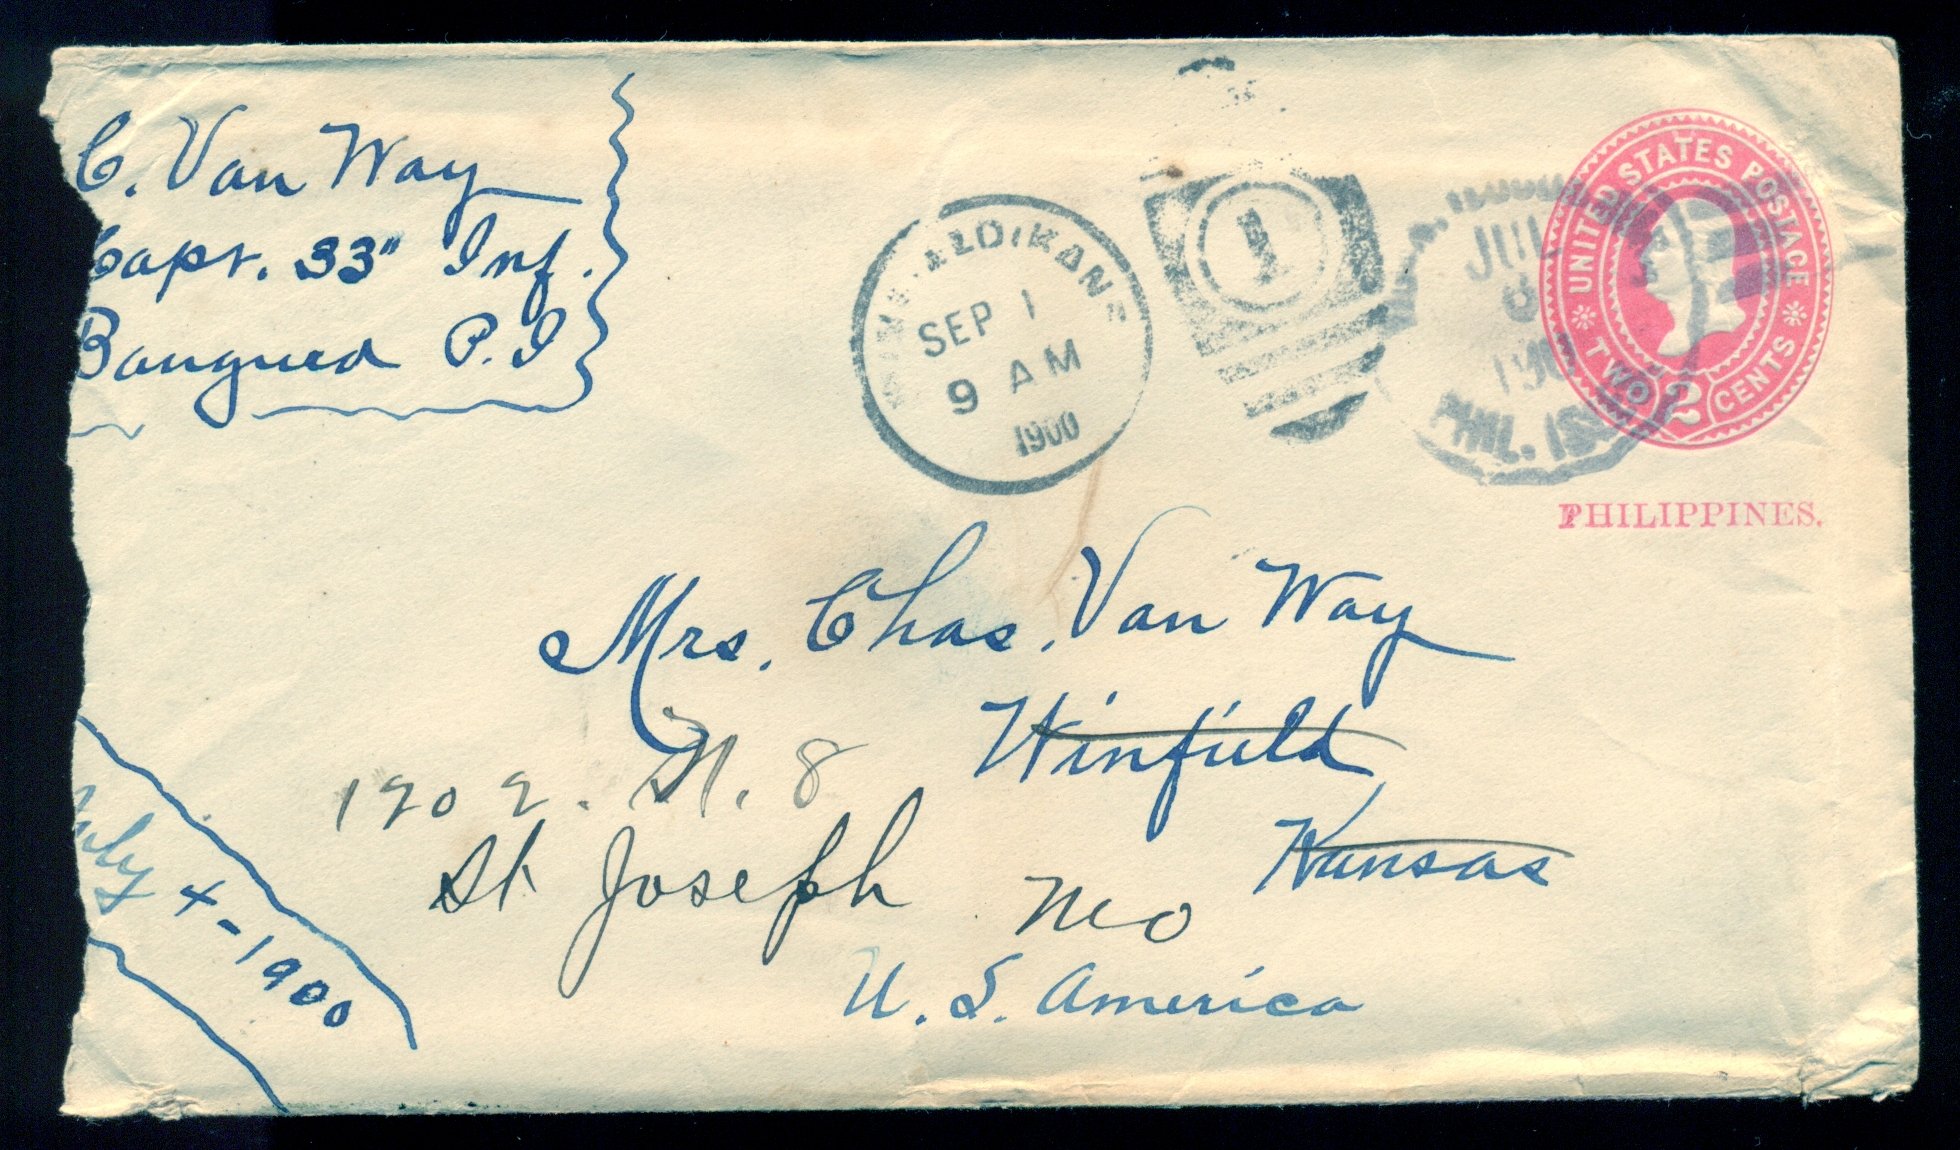 C. Van Way
Capt. 33" Inf.
Bangued P. I
SEP 1
9 AM
1900
1
JUL
PHIL. IS
UNITED STATES POSTAGE
TWO 2 CENTS
PHILIPPINES.
Mrs. Chas. Van Way
Winfield
Kansas
1202. N. 8
St Joseph Mo
U. S. America
July 4-1900